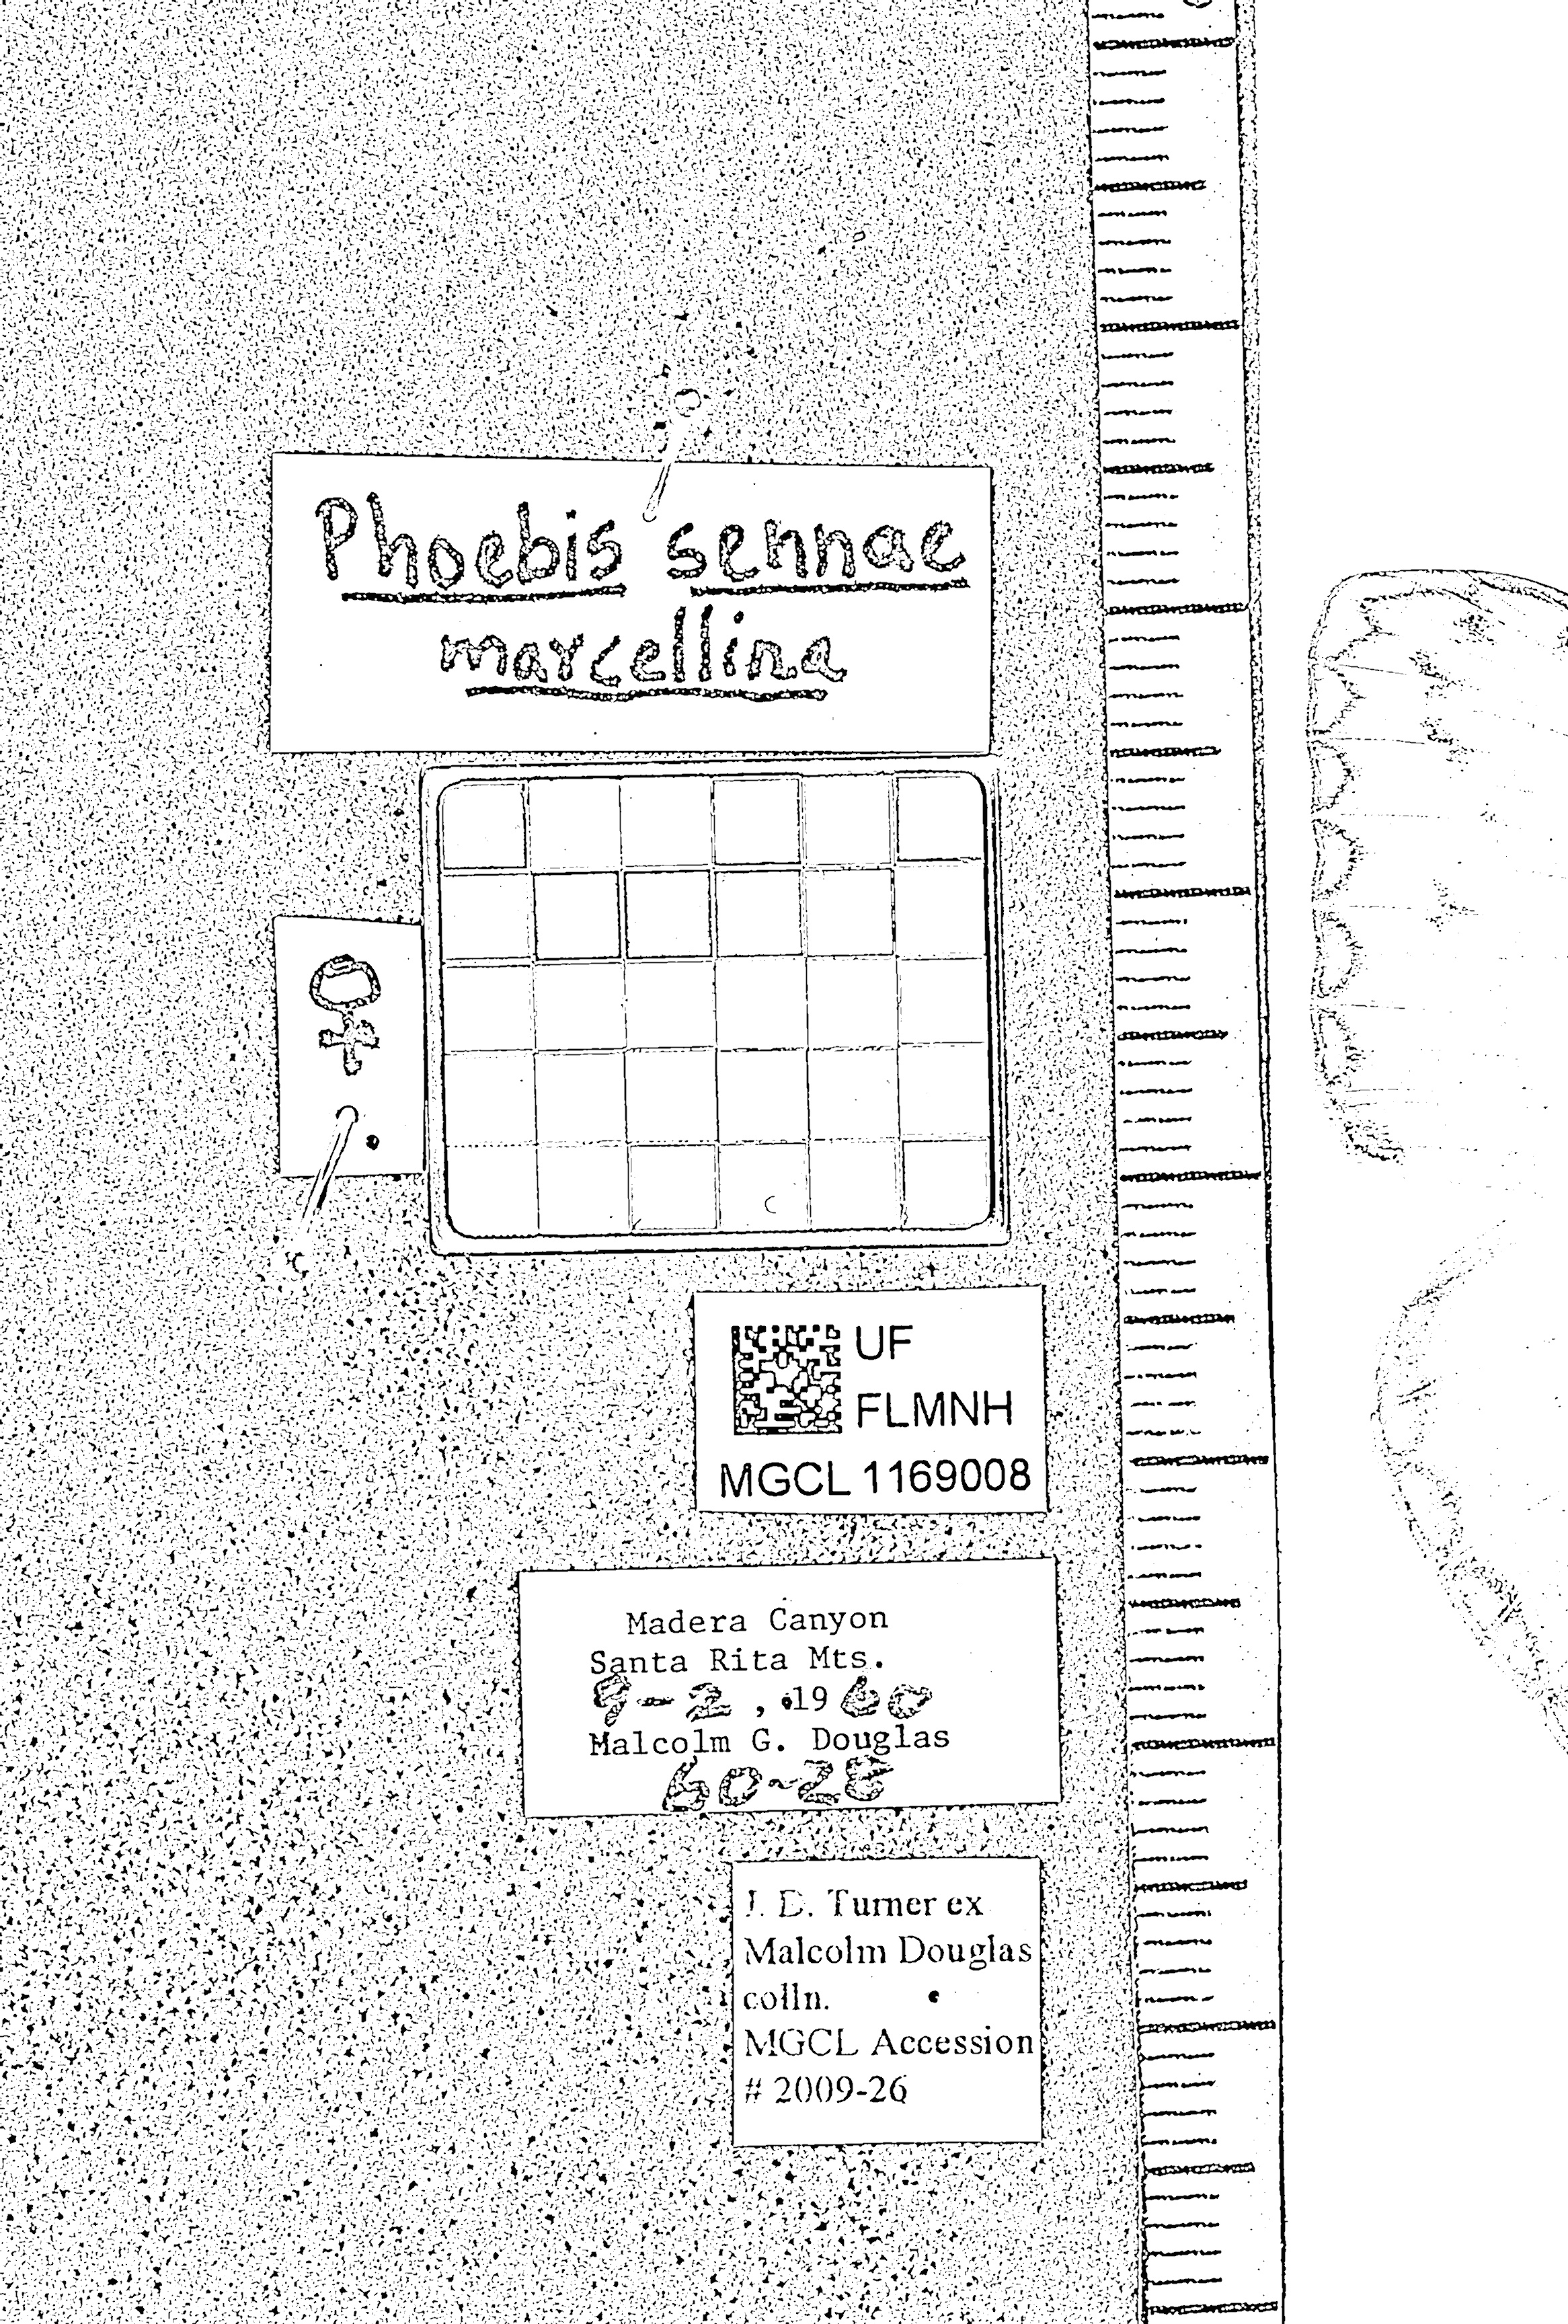 Phoebis sennae
marcellina
♀
UF
FLMNH
MGCL 1169008
Madera Canyon
Santa Rita Mts.
9-2, 1960
Malcolm G. Douglas
60-28
J. D. Turner ex
Malcolm Douglas
colln.
MGCL Accession
# 2009-26